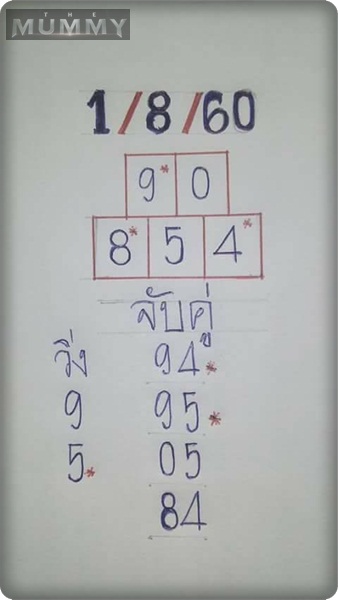 THE
MUMMY
1/8/60
9* 0
8* 5 4*
จับคู่
วิ่ง 94*
9 95*
5* 05
84